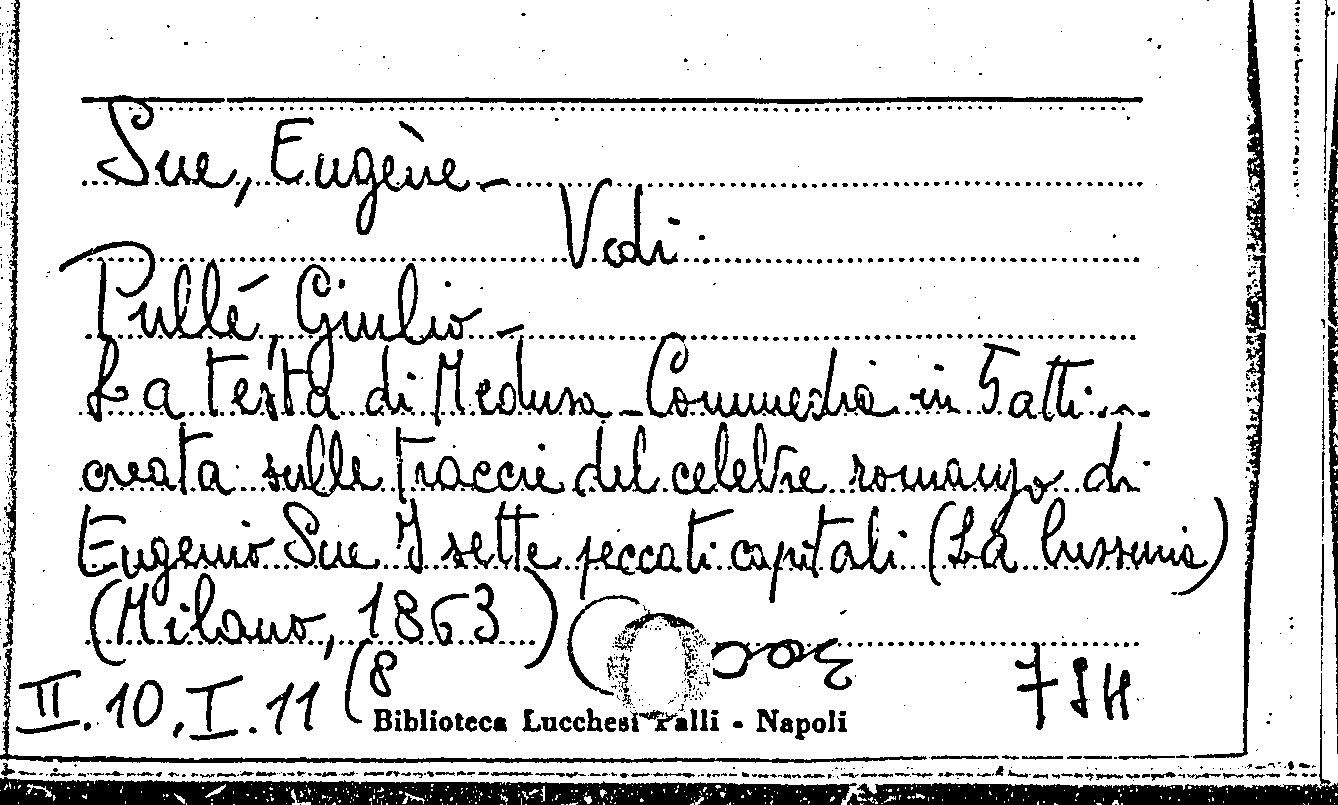 Sue, Eugène -
Vedi:
Pullé, Giulio -
La testa di Medusa - Commedia in 5 atti -
creata sulle traccie del celebre romanzo di
Eugenio Sue I sette peccati capitali (La lussuria)
(Milano, 1863)
II.10.I.11 (8
Biblioteca Lucchesi Palli - Napoli